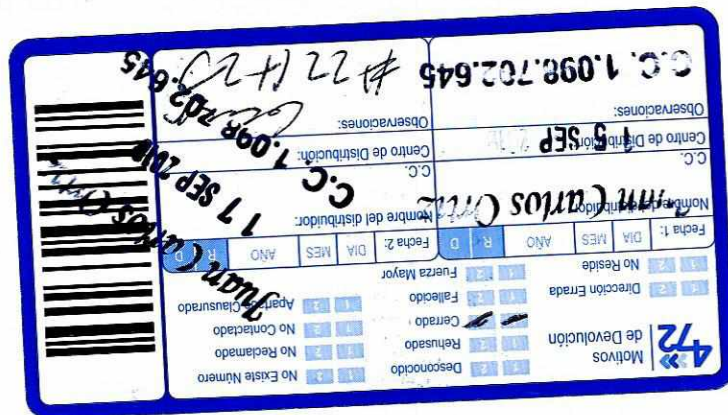 472
Motivos
de Devolución
1 2 Desconocido
1 2 Rehusado
1 2 Cerrado
1 2 Fallecido
1 2 Fuerza Mayor
1 2 No Existe Número
1 2 No Reclamado
1 2 No Contactado
1 2 Apartado Clausurado
1 2 Dirección Errada
1 2 No Reside
Fecha 1: DIA MES AÑO R D
Nombre del distribuidor:
Juan Carlos Ortiz
C.C.
Centro de Distribución:
15 SEP
Observaciones:
C.C. 1.098.702.645
Fecha 2: DIA MES AÑO R D
Nombre del distribuidor:
Juan Carlos Ortiz
17 SEP
C.C.
C.C. 1.098.702.645
Centro de Distribución:
Observaciones: